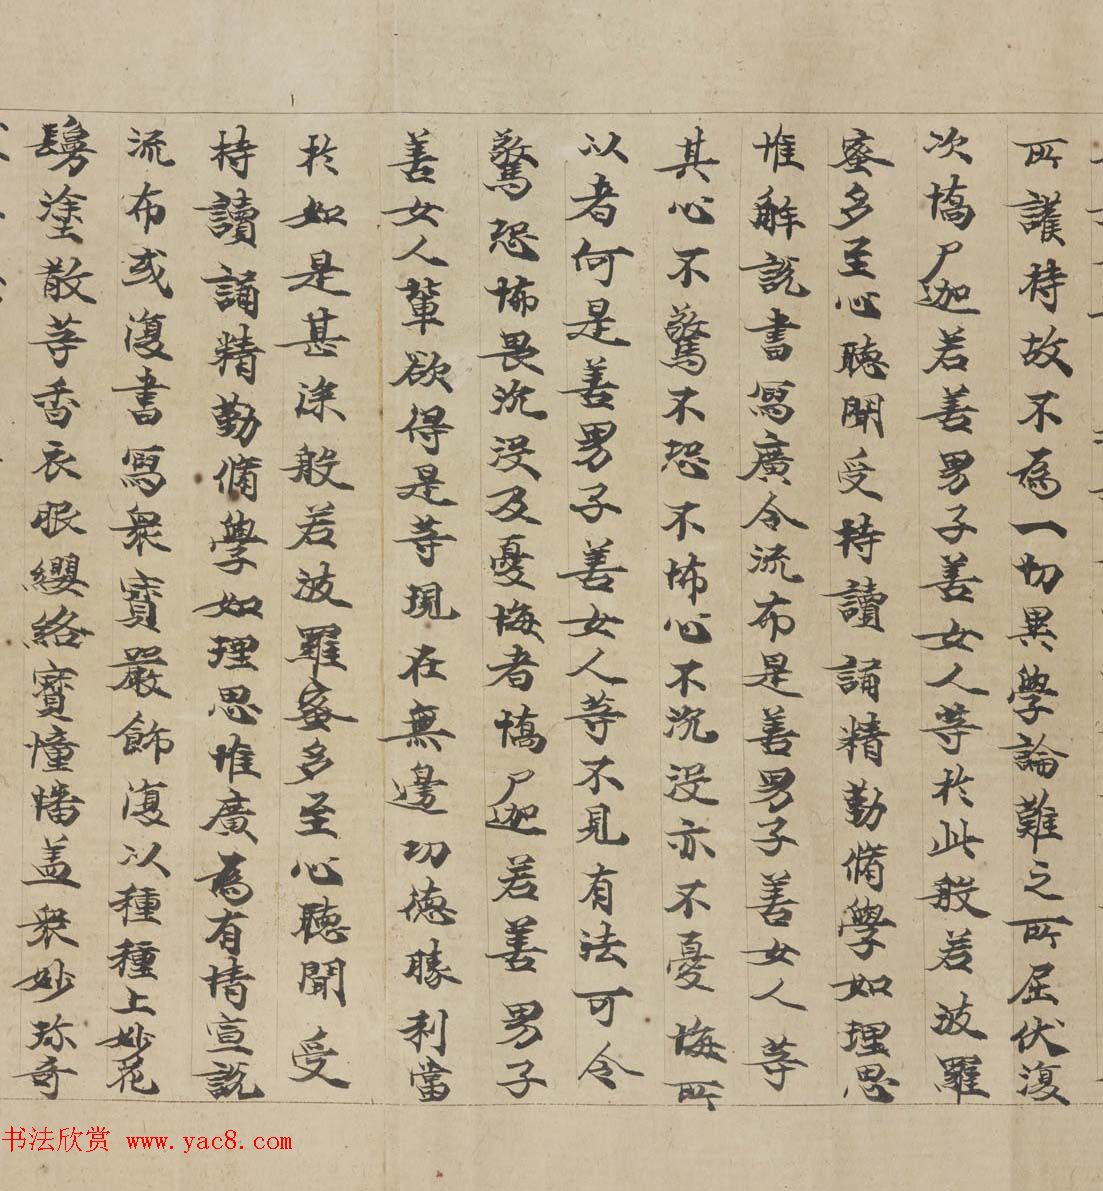 所護持故不為一切異學論難之所屈伏復
次憍尸迦若善男子善女人等於此般若波羅
蜜多至心聽聞受持讀誦精勤脩學如理思
惟解說書寫廣令流布是善男子善女人等
其心不驚不恐不怖心不沉沒亦不憂悔所
以者何是善男子善女人等不見有法可令
驚恐怖畏沉沒及憂悔者憍尸迦若善男子
善女人輩欲得是等現在無邊功德勝利當
於如是甚深般若波羅蜜多至心聽聞受
持讀誦精勤脩學如理思惟廣為有情宣說
流布或復書寫眾寶嚴飾復以種種上妙花
鬘塗散等香衣服纓絡寶幢幡盖眾妙珎奇
书法欣赏 www.yac8.com